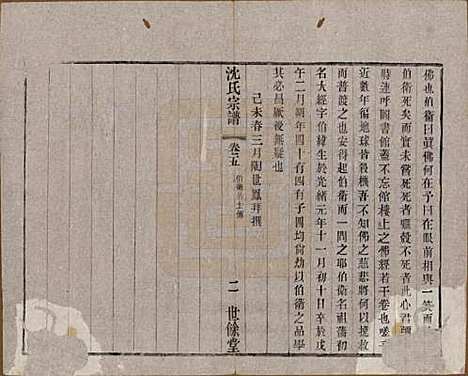 佛也伯衛曰眞佛何在予曰在眼前相與一笑而
伯衛死矣而未嘗死死者軀殼不死者此心君
時連呼圖書館蓋不忘館樓上之佛經若干卷也嗟
近數年徧地球皆殺機吾不知佛之慈悲將何以挽救
而普渡之也安得起伯衛而一問之耶伯衛名祖蕃初
名大經字伯緯生於光緒元年十一月初十日卒於戊
午二月朔年四十有四有子四均尙幼以伯衛之品學
其必昌厥後無疑也
己未春三月期世鳳拜撰
沈氏宗譜
卷五
伯衛 士傳
二
世餘堂